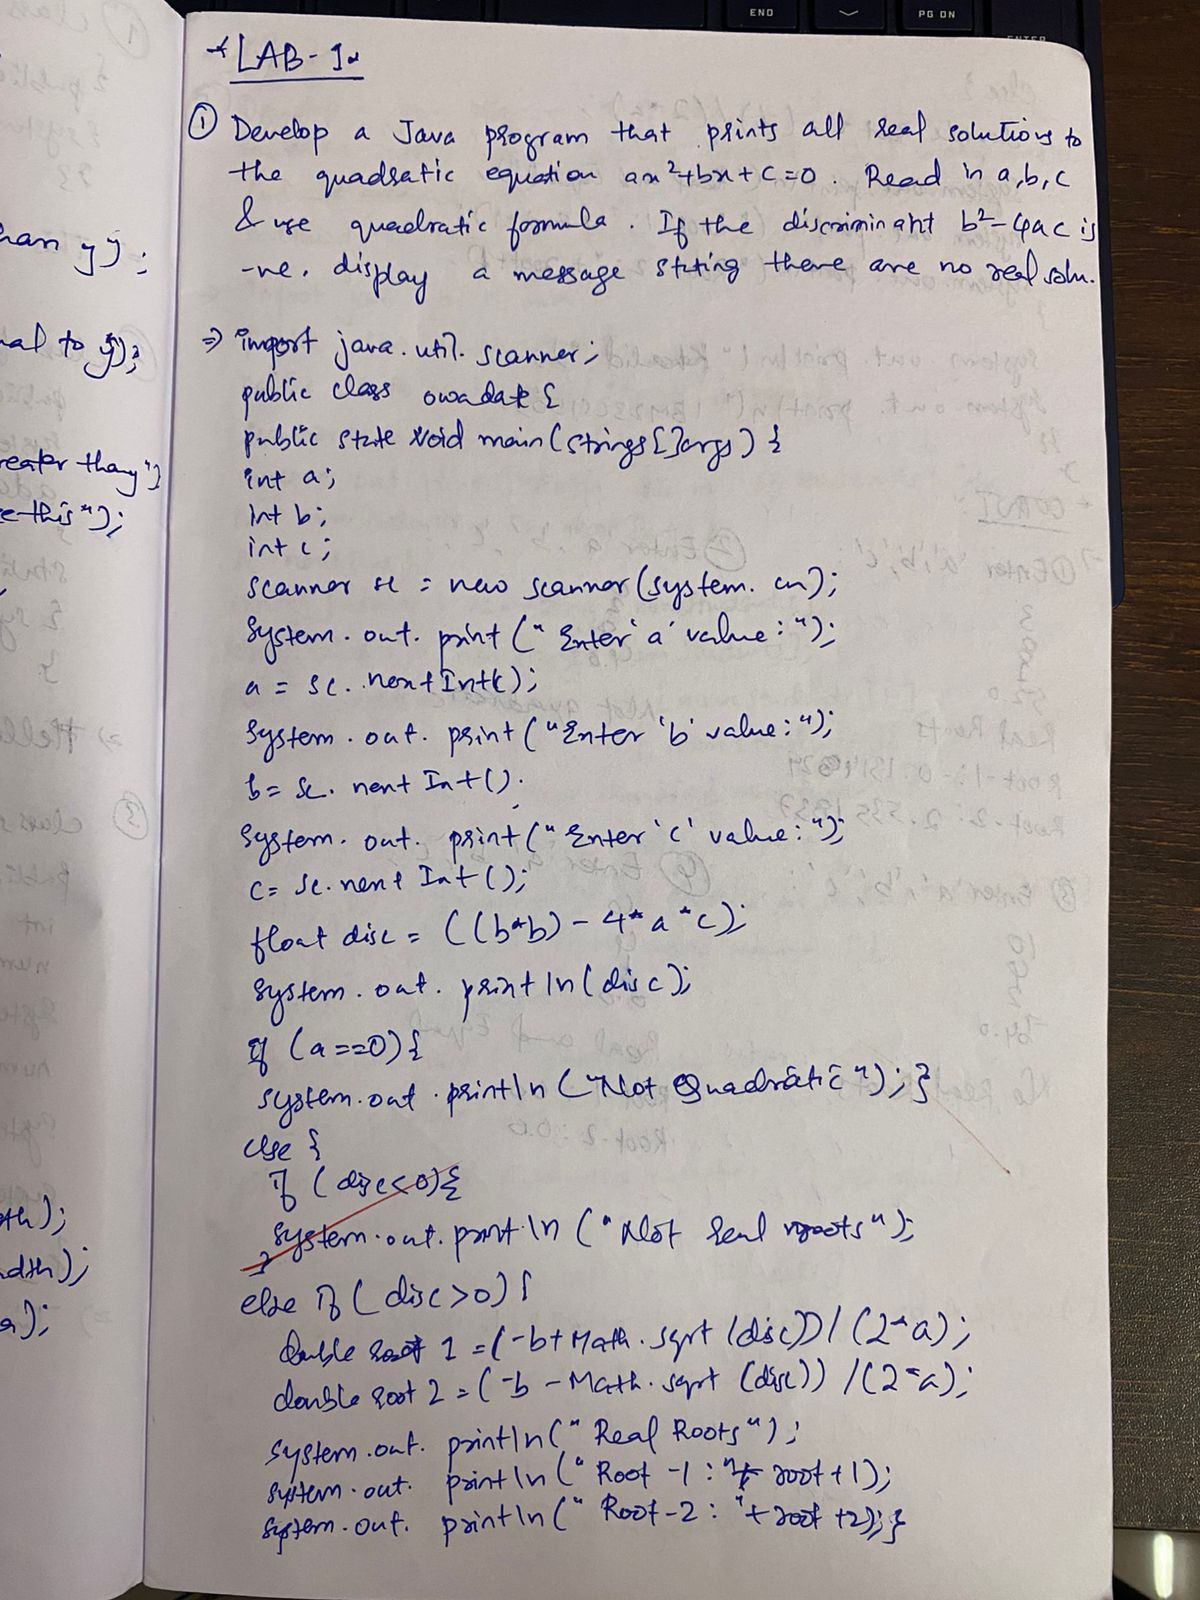 END
PG DN
ENTER
* LAB-1 *
① Develop a Java program that prints all real solutions to
the quadratic equation ax²+bx+c=0. Read in a,b,c
& use quadratic formula. If the discriminant b²-4ac is
-ve, display a message stating there are no real solu.
⇒ import java.util.scanner;
public class {
public state void main(strings[]args) {
int a;
int b;
int c;
scanner sc = new scanner(system.in);
System.out.print("Enter 'a' value:");
a = sc.nextInt();
System.out.print("Enter 'b' value:");
b= sc.next Int();
System.out.print("Enter 'c' value:");
c= sc.next Int();
float disc = ((b*b) - 4*a*c);
System.out.println(disc);
if (a==0){
system.out.println("Not Quadratic"); }
else {
if (disc<0){
system.out.println("Not real roots");
}
else if (disc>0){
double root 1 =(-b+Math.sqrt(disc))/(2*a);
double root 2 =(-b-Math.sqrt(disc))/(2*a);
system.out.println("Real Roots");
system.out.println("Root-1:"+ root+1);
system.out.println("Root-2:"+root+2);}
han y");
nal to y");
reater than y");
e this");
th);
dth);
a);